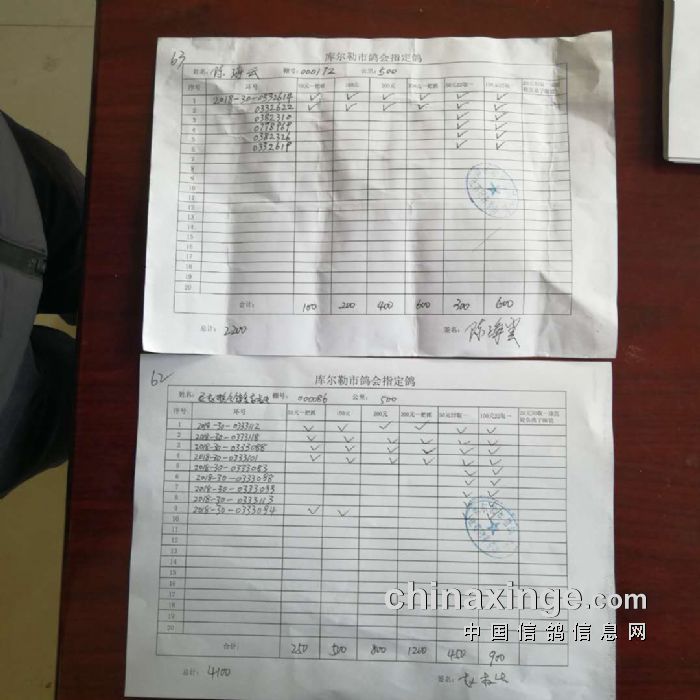 63
库尔勒市鸽会指定鸽
姓名: 陈海云 棚号: 000172 公里: 500
序号 环号 100元 200元 50元22取一 100元22取一
1 2018-30-0332614 ✓ ✓ ✓ ✓ ✓ ✓
2 0332622 ✓ ✓ ✓ ✓ ✓ ✓
3 0382310 ✓ ✓
4 ✓ ✓
5 0382326 ✓ ✓
6 0332619 ✓ ✓
7
8
9
10
11
12
13
14
15
16
17
18
19
20
合计: 100 200 400 600 300 600
总计: 2200 签名: 陈海云
62
库尔勒市鸽会指定鸽
姓名: 棚号: 000086 公里: 500
序号 环号 50元一把抓 100元 200元 300元一把抓 50元22取一 100元22取一
1 2018-30-0333112 ✓ ✓ ✓ ✓ ✓ ✓
2 2018-30-0333118 ✓ ✓ ✓ ✓ ✓ ✓
3 2018-30-0333088 ✓ ✓ ✓ ✓ ✓ ✓
4 2018-30-0333101 ✓ ✓ ✓ ✓ ✓ ✓
5 2018-30-0333083 ✓ ✓
6 2018-30-0333098 ✓ ✓
7 2018-30-0333093 ✓ ✓
8 2018-30-0333113 ✓ ✓
9 2018-30-0333094 ✓ ✓ ✓ ✓
10
11
12
13
14
15
16
17
18
19
20
合计 250 500 800 1200 450 900
总计: 4100 签名:
chinaxinge.com
中国信鸽信息网